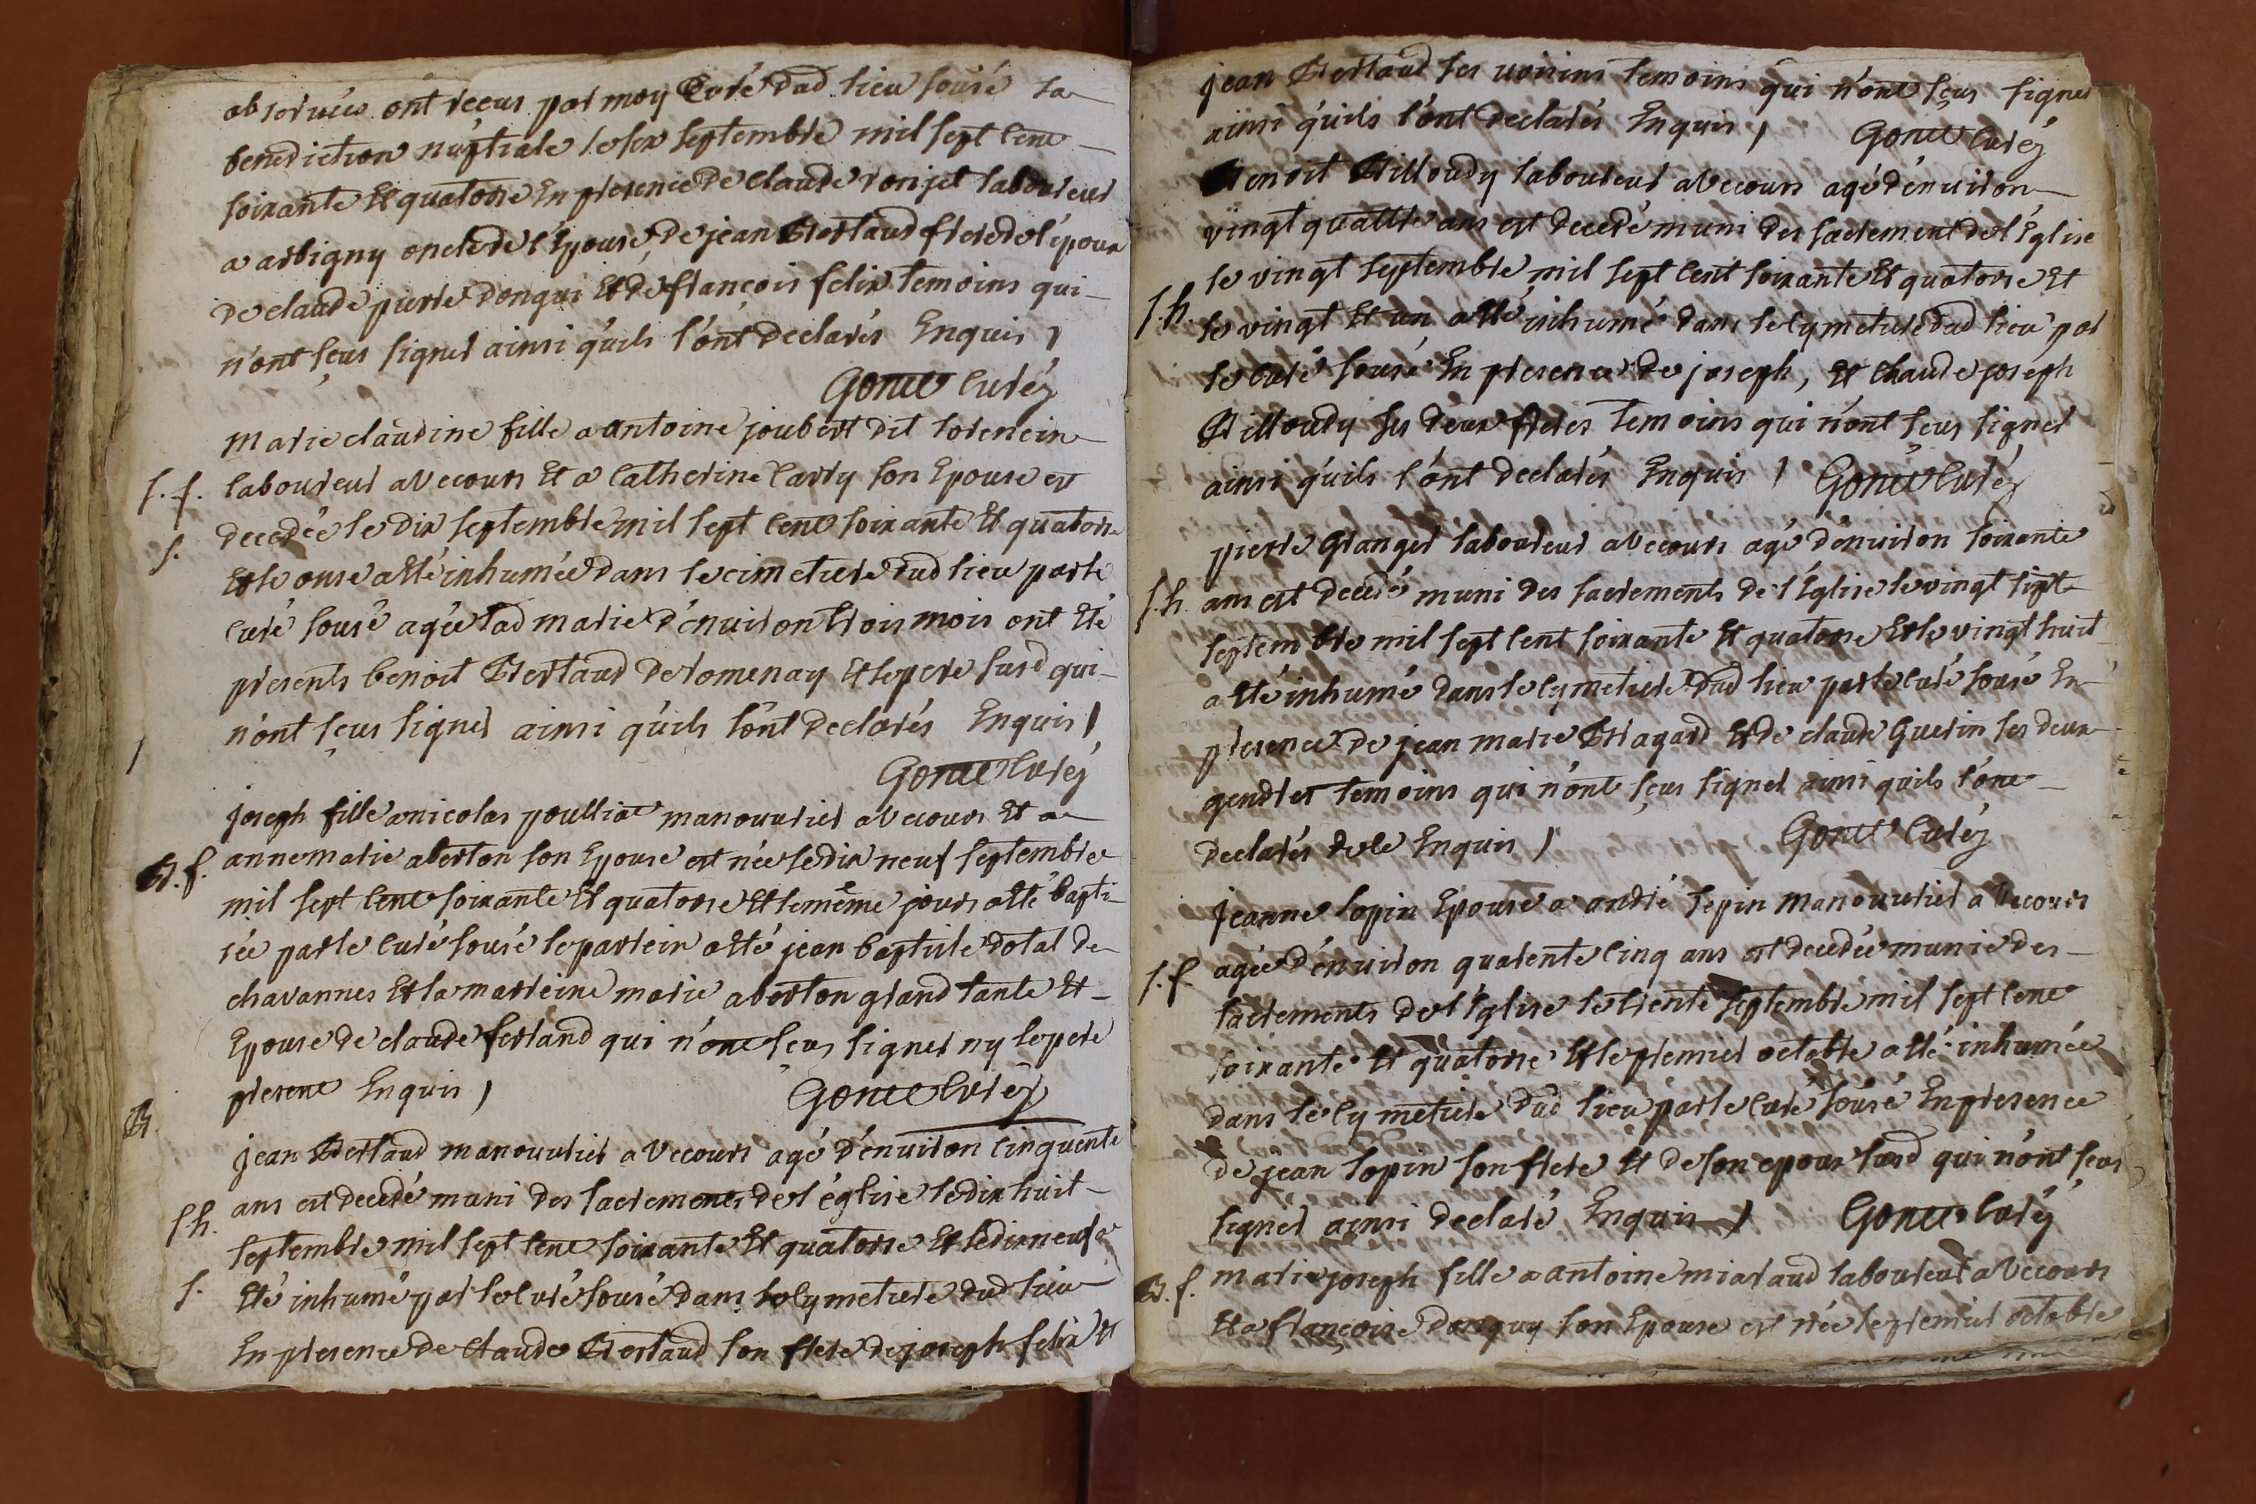 observées ont receus par moy Curé dud lieu sousé la
benediction nuptiale le six septembre mil sept cent
soixante Et quatorse En presence De Claude ronjet laboureur
a arbigny oncle de l'Epouse, de jean Bertaud frere de l'époux
de claude pierre Donqui Et de françois felix temoins qui
n'ont sçus signer ainsi qu'ils l'ont Declarés Enquis
Gonet Curé
Marie claudine fille a antoine joubert dit lorencin
S. f. laboureur a Vecours Et a Catherine Carry son Epouse est
decedée le dix septembre mil sept cent soixante Et quatorse
S.
Et le onse a été inhumée dans le cimetiere dud lieu par le
Curé sousé agée lad marie d'environ trois mois ont Eté
presents benoit Bertaud de romenay Et le pere susd qui
n'ont sçus signer ainsi qu'ils l'ont Declarés Enquis
Gonet Curé
joseph fille a nicolas poulliat manouvrier a Vecours Et a
B. f. anne marie aberton son Epouse est née le dix neuf septembre
mil sept cent soixante Et quatorse Et le même jour a été bapti-
sée par le Curé sousé le parrein a été jean baptiste dotal de
chavannes Et la marreine marie aberton grand tante Et
Epouse de claude ferland qui n'ont sçus signer ny le pere
present Enquis
Gonet Curé
B.
jean Bertaud manouvrier a Vecours agé d'environ cinquente
S h. ans est decedé muni des sacrements de l'église le dix huit
septembre mil sept cent soixante Et quatorse Et le dix neuf a
S. Eté inhumé par le Curé sousé dans le cymetiere dud lieu
En presence de Claude Bertaud son frere de joseph felix Et
jean Bertaud ses voisins temoins qui n'ont sçus signer
ainsi qu'ils l'ont Declarés Enquis Gonet Curé
Benoit Billoudy laboureur a Vecours agé d'environ
vingt quattre ans est decedé muni des sacrement de l'Eglise
le vingt septembre mil sept cent soixante Et quatorse Et
S. h. le vingt Et un a été inhumé dans le cymetiere dud lieu par
le Curé sousé En presence de joseph, Et Claude joseph
Billoudy ses deux freres temoins qui n'ont sçus signer
ainsi qu'ils l'ont Declarés Enquis Gonet Curé
pierre Granger laboureur a Vecours agé d'environ soixante
S. h. ans est decedé muni des sacrements de l'Eglise le vingt sept
septembre mil sept cent soixante Et quatorse Et le vingt huit
a été inhumé dans le cymetiere dud lieu par le Curé sousé En
presence de jean marie Bragard Et de claude Guerin ses deux
gendres temoins qui n'ont sçus signer ainsi qu'ils l'ont
declarés de ce Enquis Gonet Curé
jeanne lopin Epouse a andré pepin manouvrier a Vecours
S. f. agée d'environ quarente cinq ans est decedée munie des
sacrements de l'Eglise le trente septembre mil sept cent
soixante Et quatorse Et le premier octobre a été inhumée
dans le cymetiere dud lieu par le Curé sousé En presence
de jean lopin son frere Et de son epoux susd qui n'ont sçus
signer ainsi declaré Enquis Gonet Curé
B. f. marie joseph fille a antoine miaraud laboureur a Vecours
Et a françoise donguy son Epouse est née le premier octobre